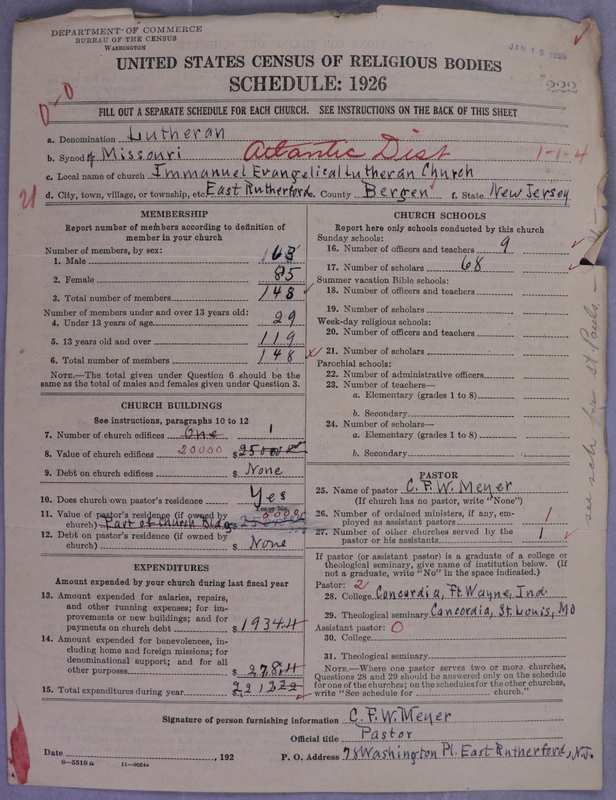 DEPARTMENT OF COMMERCE
BUREAU OF THE CENSUS
WASHINGTON
JAN 1926
UNITED STATES CENSUS OF RELIGIOUS BODIES
SCHEDULE: 1926
FILL OUT A SEPARATE SCHEDULE FOR EACH CHURCH. SEE INSTRUCTIONS ON THE BACK OF THIS SHEET
a. Denomination Lutheran
b. Synod of Missouri Atlantic Dist 1-1-4
c. Local name of church Immanuel Evangelical Lutheran Church
d. City, town, village, or township, etc. East Rutherford e. County Bergen f. State New Jersey
MEMBERSHIP
Report number of members according to definition of
member in your church
Number of members, by sex:
1. Male 63
2. Female 85
3. Total number of members 148
Number of members under and over 13 years old:
4. Under 13 years of age 29
5. 13 years old and over 119
6. Total number of members 148
NOTE.—The total given under Question 6 should be the
same as the total of males and females given under Question 3.
CHURCH BUILDINGS
See instructions, paragraphs 10 to 12
7. Number of church edifices One 1
8. Value of church edifices 20000 $25000
9. Debt on church edifices $ None
10. Does church own pastor's residence Yes
11. Value of pastor's residence (if owned by
church) Part of Church Bldg $
12. Debt on pastor's residence (if owned by
church) $ None
EXPENDITURES
Amount expended by your church during last fiscal year
13. Amount expended for salaries, repairs,
and other running expenses; for im-
provements or new buildings; and for
payments on church debt $ 1934
14. Amount expended for benevolences, in-
cluding home and foreign missions; for
denominational support; and for all
other purposes $ 278
15. Total expenditures during year $ 2212
CHURCH SCHOOLS
Report here only schools conducted by this church
Sunday schools:
16. Number of officers and teachers 9
17. Number of scholars 68
Summer vacation Bible schools:
18. Number of officers and teachers
19. Number of scholars
Week-day religious schools:
20. Number of officers and teachers
21. Number of scholars
Parochial schools:
22. Number of administrative officers
23. Number of teachers—
a. Elementary (grades 1 to 8)
b. Secondary
24. Number of scholars—
a. Elementary (grades 1 to 8)
b. Secondary
PASTOR
25. Name of pastor C. F. W. Meyer
(If church has no pastor, write "None")
26. Number of ordained ministers, if any, em-
ployed as assistant pastors 1
27. Number of other churches served by the
pastor or his assistants 1
If pastor (or assistant pastor) is a graduate of a college or
theological seminary, give name of institution below. (If
not a graduate, write "No" in the space indicated.)
Pastor: 2
28. College Concordia, Ft. Wayne, Ind.
29. Theological seminary Concordia, St. Louis, MO
Assistant pastor: 0
30. College
31. Theological seminary
NOTE.—Where one pastor serves two or more churches,
Questions 28 and 29 should be answered only on the schedule
for one of the churches; on the schedules for the other churches,
write "See schedule for church."
Signature of person furnishing information C. F. W. Meyer
Official title Pastor
Date , 192 P. O. Address 78 Washington Pl. East Rutherford, N.J.
8—5518 a